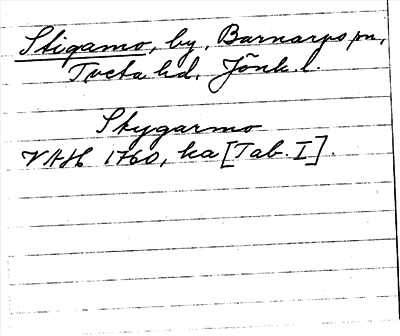 Stigamo, by, Barnarps sn,
Tveta hd, Jönk. l.
Stygarmo
VAH 1760, ka [Tab. I].